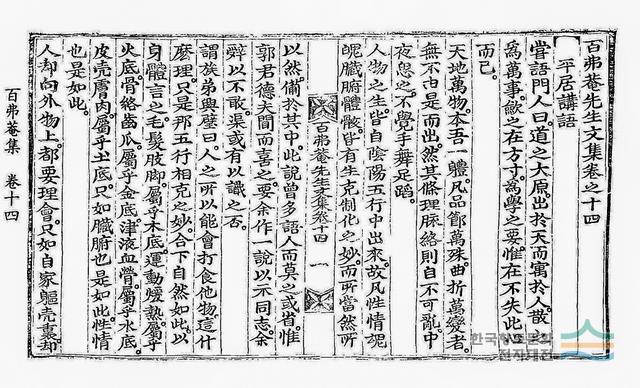 百弗菴先生文集卷之十四
平居講語
嘗語門人曰道之大原出於天而寓於人散之
為萬事斂之在方寸為學之要惟在不失此心
而已
天地萬物本吾一體凡品節萬殊曲折萬變者
無不由是而出然其條理脉絡則自不可亂中
夜忽之不覺手舞足蹈
人物之生皆自陰陽五行中出來故凡性情
魄臟腑體骸皆有生克制化之妙而所當然所
百弗菴先生文集卷十四 一
以然備於其中此說曾多語人而莫之或省惟
郭君德夫間而喜之要余作一說以示同志余
辭以不敢渠或有以識之否
謂族弟興璧曰人之所以能會打食他物這什
麽理只是那五行相克之妙合下自然如此以
身體言之毛髮肢脚屬乎木底運動煖熱屬乎
火底骨絡齒爪屬乎金底津液血膏屬乎水底
皮壳膚肉屬乎土底只如臟腑也是如此性情
也是如此
人却向外物上都要理會只如自家軀壳裏却
百弗菴集 卷十四
한국학문화
전자대전